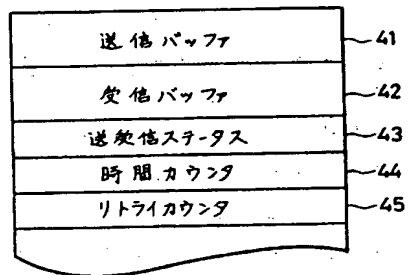 送信バッファ 41
受信バッファ 42
送受信ステータス 43
時間カウンタ 44
リトライカウンタ 45